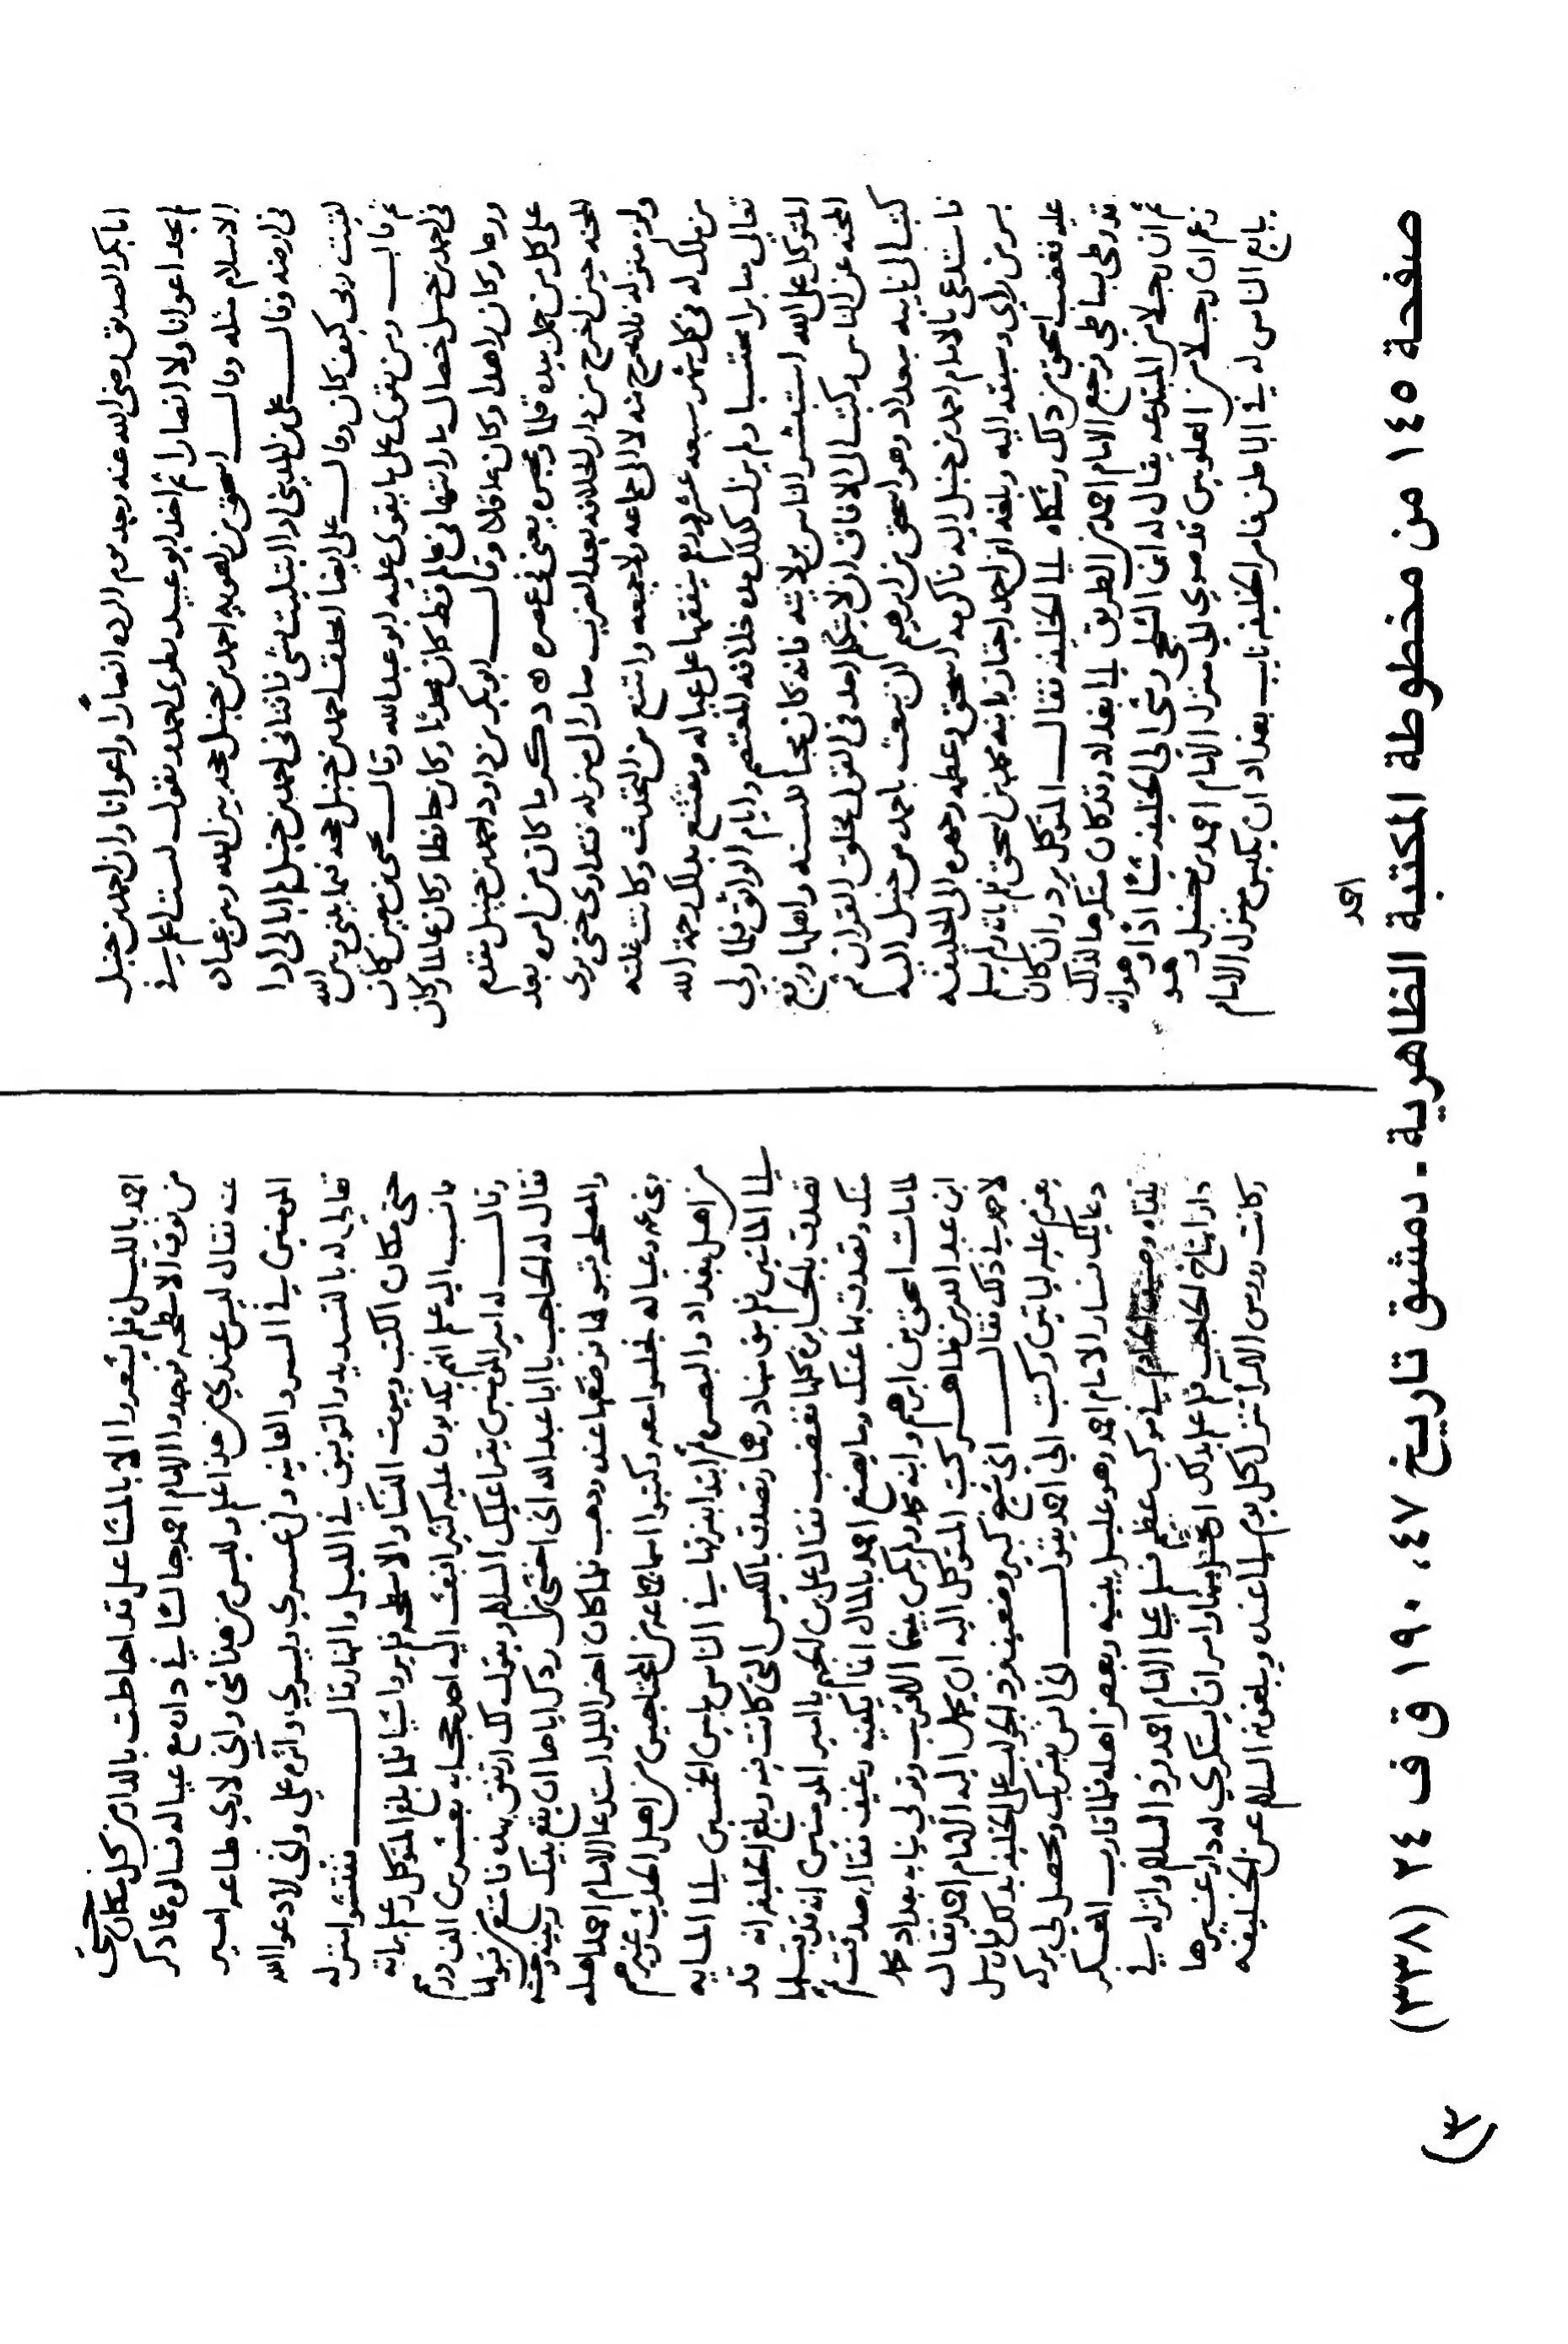 ابا بكر الصديق رضى الله عنه وجد يوم الرده انصارا واعوانا وان احمد بن حنبل
لم يجد اعوانا ولا انصارا ثم اخذ ابو عبيد يطرى احمد ويقول لست اعلم في
الاسلام مثله وقال اسحق بن راهويه احمد بن حنبل حجه بين الله وبين عباده
في ارضه وقال على بن المديني اذا ابتليت بشى فافتانى احمد بن حنبل لم ابالى اذا
لقيت ربى كيف كان وقال على ايضا اتخذت احمد بن حنبل حجه فيما بيني وبين الله
ثم قال ومن يقوى على ما يقوى عليه ابو عبد الله وقال يحيى بن معين كان
فى احمد بن حنبل خصال ما رايتها فى عالم قط كان محدثا وكان حافظا وكان عالما وكان
ورعا وكان زاهدا وكان عاقلا وقال ابو بكر بن داود احمد بن حنبل مقدم
على كل من حمل بيده قلما ومحبره يعنى فى عصره ذكر ما كان من امره بعد
المحنه حين اخرج من دار الخلافه بعد الضرب صار الى منزله فتداوى حتى برى
ولزم منزله فلا يخرج منه لا الى جماعه ولا جمعه وامتنع من التحديث وكانت غلته
من ملك له فى كل شهر سبعه عشر درهم ينفقها على عياله ويقتنع بذلك رحمة الله
تعالى صابرا محتسبا ولم يزل كذلك مده خلافه المعتصم وايام الواثق فلما ولي
المتوكل على الله استبشر الناس بولايته فانه كان محبا للسنه واهلها ورفع
المحنه عن الناس وكتب الى الافاق ان لا يتكلم احد فى القول بخلق القران ثم
كتب الى نايبه ببغداد وهو اسحق بن ابرهيم ان يبعث باحمد بن حنبل اليه
فاستدعى بالامام احمد بن حنبل اليه فاكرمه اسحق وعظمه وجهزه الى الخليفه
بسر من راي وسبقه اليه وبلغه ان احمد اجتاز بابنه محمد بن اسحق فلم ياته ولم يسلم
عليه فغضب اسحق من ذلك وشكاه الى الخليفه فقال المتوكل يرد وان كان
قد وطى بساطى فرجع الامام احمد من الطريق الى بغداد وقد كان متكرها لذلك
ثم ان رجلا من المبتدعه يقال له ابن الثلجى وشى الى الخليفه شيئا اذا وهو انه
زعم ان رجلا من العلويين قد ضوي الى منزل الامام احمد بن حنبل وهو
يبايع الناس له في الباطن فامر الخليفه نايب بغداد ان يكبس منزل الامام
احمد
احمد بالليل فلم يشعروا الا بالمشاعل قد احاطت بالدار من كل مكان حتى
من فوق الاسطحه فوجدوا الامام احمد جالسا في داره مع عياله فسالوه عما ذكر
عنه فقال ليس عندي من هذا علم وليس من هذا شى وانى لارى طاعه امير
المومنين في السر والعلانيه وفى عسري ويسري واثره علي وانى لادعو الله
تعالى له بالتسديد والتوفيق في الليل والنهار قال ففتشوا منزله
حتى مكان الكتب وبيوت النساء والاسطحه فلم يروا شيا فلما بلغ المتوكل وعلم براته
مما نسب اليه علم انهم يكذبون عليه كثيرا فبعث اليه احد حجابه بعشره الف درهم
وقال له امير المومنين يقرا عليك السلام ويقول لك ارتفق بهذه فامتنع من قبولها
فقال له الحاجب يا ابا عبد الله انى اخشى من ردك اياها ان يقع بينك وبينه وحشه
والمصلحه قبولها فوضعها عنده وذهب فلما كان اخر الليل استدعا الامام احمد اهله
وبنى عمه وعياله فجلسوا معه وكتبوا اسما جماعه من المحتاجين من اهل الحديث وغيرهم
من اهل بغداد والبصره ثم ابتدا يفرقها في الناس ما بين الخمسين الى المايه
الى المايتين فلم يبق منها درهما وتصدق بالكيس التى كانت فيه وبلغ الخليفه انه قد
تصدق بكلها فغضب فقال على بن الجهم يا امير المومنين انه قد قبلها
منك وتصدق بها عنك وما يصنع احمد بالمال انما يكفيه رغيف فقال صدقت ثم
لما مات اسحق بن ابرهيم وابنه محمد ولم يكن بينهما الا القريب وتولى نيابه بغداد محمد
ابن عبد الله بن طاهر كتب المتوكل اليه ان يحمل اليه الامام احمد فقال
لاحمد في ذلك فقال انى شيخ كبير وضعيف فرد الجواب على الخليفه بذلك فارسل
يعزم عليه لياتين وكتب الى احمد يقول انى احب ان انس بقربك ويحصل لى بركه
دعايك فسار الامام احمد وهو عليل ببنيه وبعض اهله فلما قارب العسكر
تلقاه وصيف الخادم في موكب عظيم فسلم على الامام احمد فرد السلام وانزله في
دار ايتاخ الحاجب فلما علم بذلك ارتحل منها وامر ان يستكرى له دار غيرها
وكانت رووس الامرا تنزل كل يوم الى عنده ويبلغونه السلام عن الخليفه
صفحة ١٤٥ من مخطوطة المكتبة الظاهرية ـ دمشق تاريخ ٤٧، ١٩٠ ق ف ٢٤ (٣٣٨)
(٣